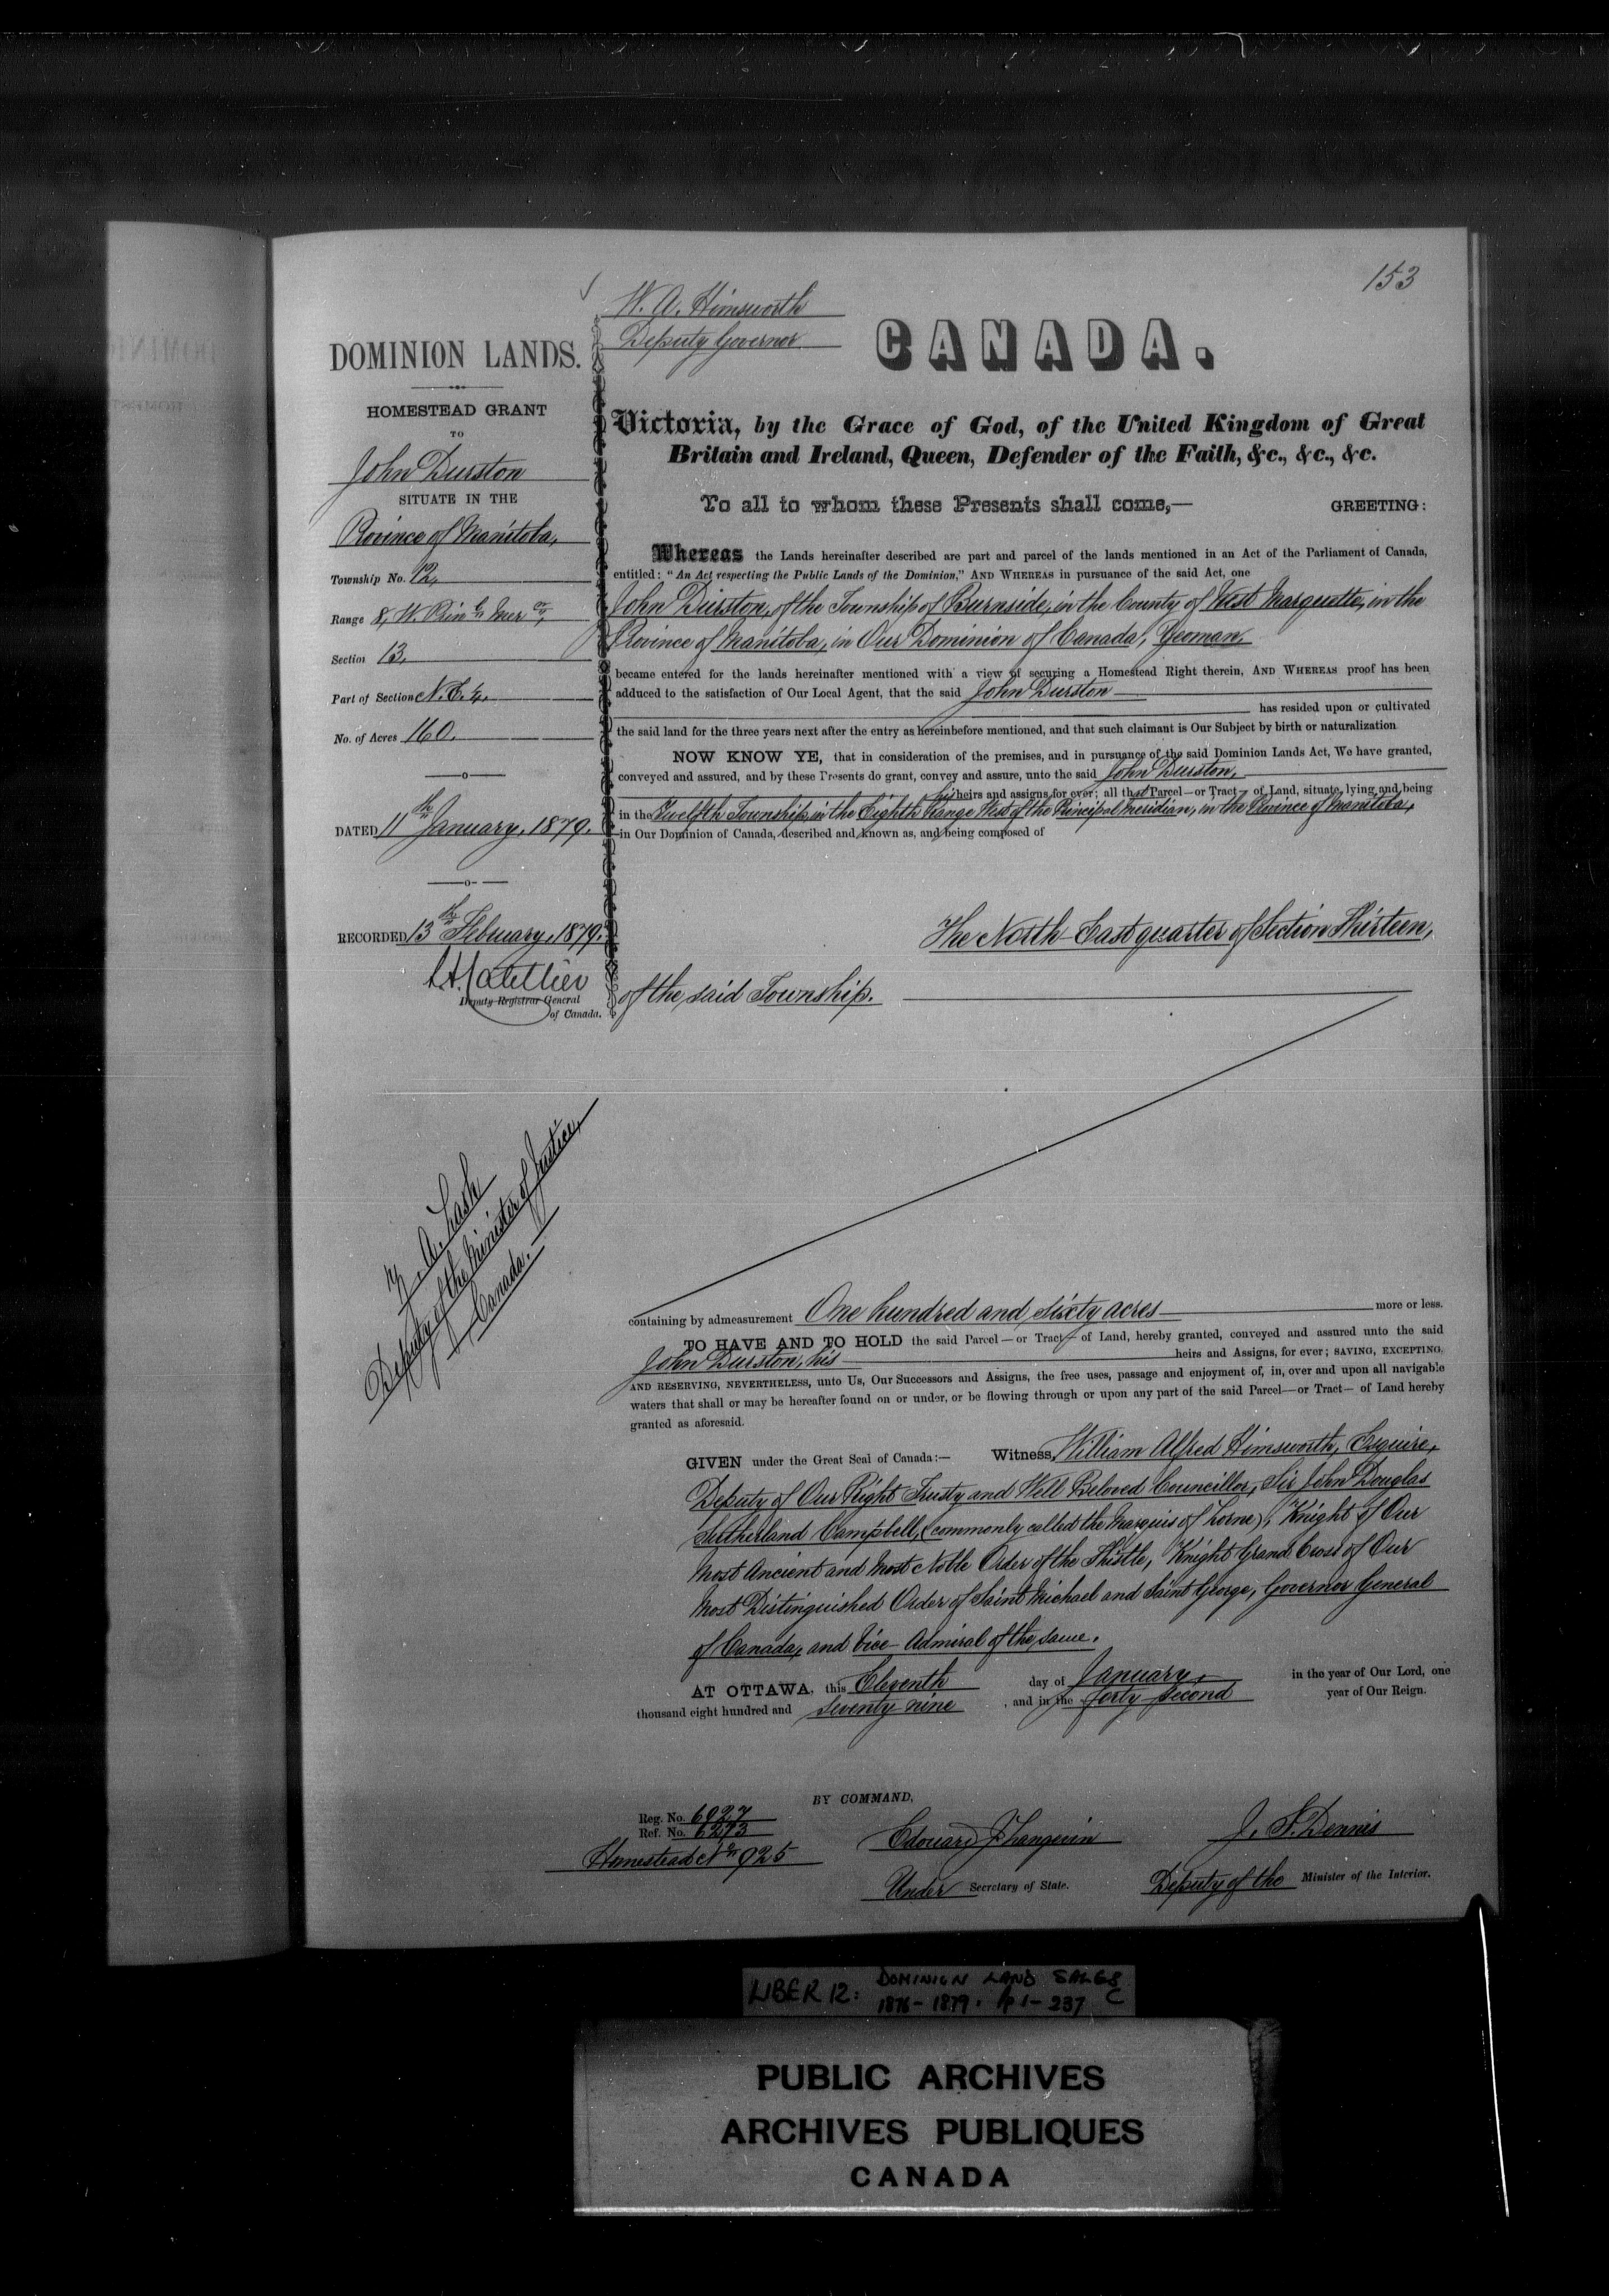 153
W. A. Himsworth
Deputy Governor
CANADA.
DOMINION LANDS.
HOMESTEAD GRANT
TO
John Durston
SITUATE IN THE
Province of Manitoba,
Township No. 12,
Range 8, W. Prin l. Mer en,
Section 13,
Part of Section N. E. 4.
No. of Acres 160.
DATED 11th January, 1879.
RECORDED 13th February, 1879.
Deputy Registrar General
of Canada.
Z. A. Lash
Deputy of the Minister of Justice,
Canada.
Victoria, by the Grace of God, of the United Kingdom of Great
Britain and Ireland, Queen, Defender of the Faith, &c., &c., &c.
To all to whom these Presents shall come,— GREETING:
Whereas the Lands hereinafter described are part and parcel of the lands mentioned in an Act of the Parliament of Canada,
entitled: "An Act respecting the Public Lands of the Dominion," AND WHEREAS in pursuance of the said Act, one
John Durston, of the Township of Burnside, in the County of West Marquette, in the
Province of Manitoba, in Our Dominion of Canada, Yeoman
became entered for the lands hereinafter mentioned with a view of securing a Homestead Right therein, AND WHEREAS proof has been
adduced to the satisfaction of Our Local Agent, that the said John Durston
has resided upon or cultivated
the said land for the three years next after the entry as hereinbefore mentioned, and that such claimant is Our Subject by birth or naturalization
NOW KNOW YE, that in consideration of the premises, and in pursuance of the said Dominion Lands Act, We have granted,
conveyed and assured, and by these Presents do grant, convey and assure, unto the said John Durston,
his heirs and assigns for ever; all that Parcel—or Tract—of Land, situate, lying and being
in the Twelfth Township, in the Eighth Range West of the Principal Meridian, in the Province of Manitoba,
in Our Dominion of Canada, described and known as, and being composed of
The North East quarter of Section Thirteen,
of the said Township.
containing by admeasurement One hundred and sixty acres more or less.
TO HAVE AND TO HOLD the said Parcel—or Tract—of Land, hereby granted, conveyed and assured unto the said
John Durston, his heirs and Assigns, for ever; SAVING, EXCEPTING,
AND RESERVING, NEVERTHELESS, unto Us, Our Successors and Assigns, the free uses, passage and enjoyment of, in, over and upon all navigable
waters that shall or may be hereafter found on or under, or be flowing through or upon any part of the said Parcel—or Tract—of Land hereby
granted as aforesaid.
GIVEN under the Great Seal of Canada:— Witness, William Alfred Himsworth, Esquire,
Deputy of Our Right Trusty and Well Beloved Councillor, Sir John Douglas
Sutherland Campbell, (commonly called the Marquis of Lorne), Knight of Our
Most Ancient and Most Noble Order of the Thistle, Knight Grand Cross of Our
Most Distinguished Order of Saint Michael and Saint George, Governor General
of Canada, and Vice-Admiral of the same.
AT OTTAWA, this Eleventh day of January, in the year of Our Lord, one
thousand eight hundred and seventy nine, and in the forty second year of Our Reign.
BY COMMAND,
Reg. No. 6027
Ref. No. 6273
Homestead No. 925
Edouard J. Langevin
Under Secretary of State.
J. S. Dennis
Deputy of the Minister of the Interior.
LIBER 12: DOMINION LAND SALES
1876-1879. p 1-237 C
PUBLIC ARCHIVES
ARCHIVES PUBLIQUES
CANADA